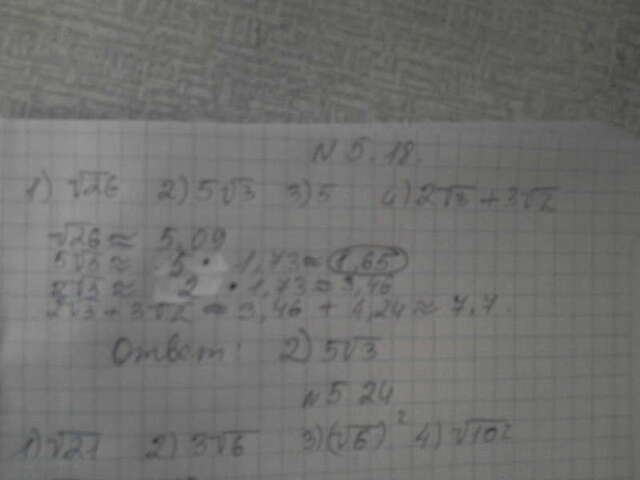 N 5.18.
1) √26 2) 5√3 3) 5 4) 2√3 + 3√2
√26 ≈ 5,09
5√3 ≈ 5 · 1,73 ≈ 8,65
2√3 ≈ 2 · 1,73 ≈ 3,46
2√3 + 3√2 ≈ 3,46 + 4,24 ≈ 7,7.
Ответ: 2) 5√3
N 5 24
1) √21 2) 3√6 3) (√6)² 4) √102